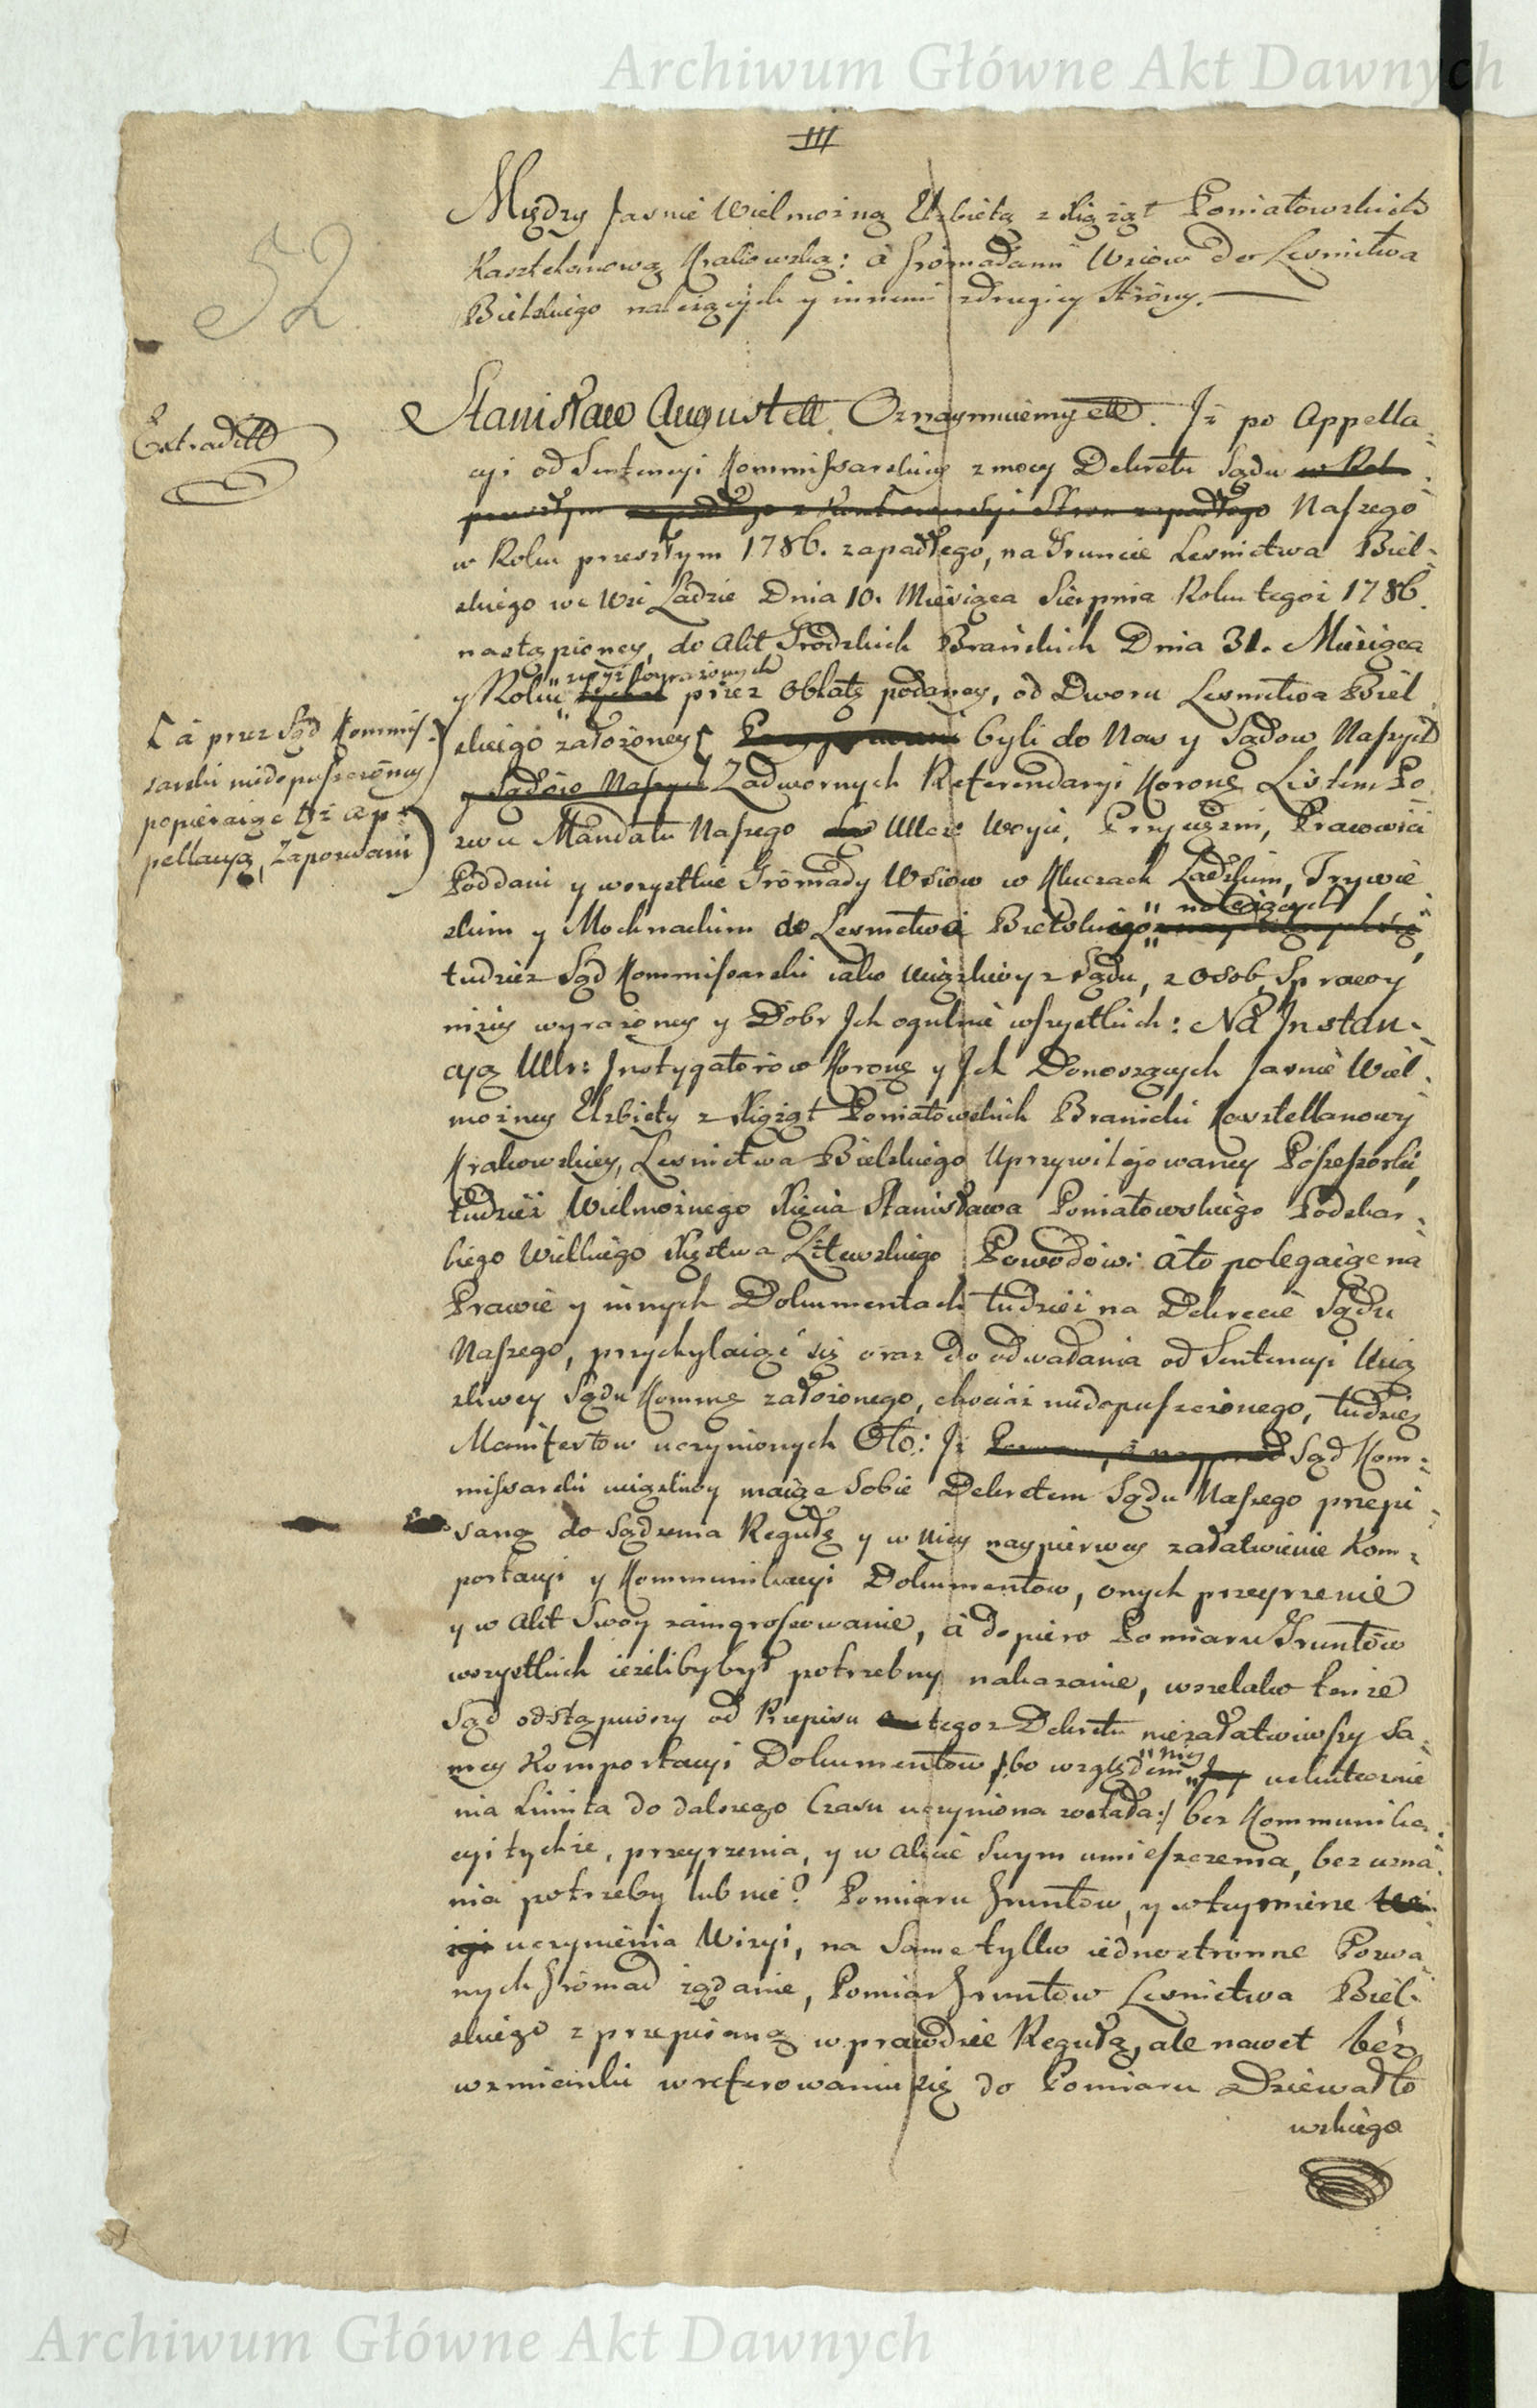 Archiwum Główne Akt Dawnych
III
52.
Między Jasnie Wielmożną Elzbietą z Xiążąt Poniatowskich
Kasztelanową Krakowską: à Gromadami Wsiow do Lesnictwa
Bielskiego należących y innemi z drugiey Strony.
Extradit
Stanisław August ett. Oznaymuiemy ett. Iż po Appella-
cyi od Sentencyi Kommissarskiey z mocy Dekretu Sądu w Rok
przeszłym zapadłego z Kontrowersyi Stron zapadłego Naszego
w Roku przeszłym 1786. zapadłego, na Gruncie Lesnictwa Biel-
skiego we Wsi Ladzie Dnia 10. Miesiąca Sierpnia Roku tegoż 1786.
nastąpioney, do Akt Grodzkich Brańskich Dnia 31. Miesiąca
y Roku wyż wyrażonych przez Oblatę podaney, od Dworu Lesnictwa Biel
skiego założoney [ byli do Nas y Sądow Naszych
[ à przez Sąd Kommis-
sarski niedopuszczoney
popieraiąc tęż ap-
pellacyą, Zapozwani
y Sądów Naszych Zadwornych Referendaryi Koronę Listem Po
zwu Mandatu Naszego Uttci Woyci, Przysiężni, Prawowici
Poddani y wszystkie Gromady Wsiow w Kluczach Ladzkim, Trywie
skim y Mochnackim do Lesnictwa Bielskiego należących
tudzież Sąd Kommissarski iako uciążliwy z Sądu, z Osob, Sprawy
niżey wyrażoney y Dobr Ich ogulnie wszystkich: Na Instan-
cyą Ur: Instygatorow Koronę y Ich Donoszących Jasnie Wiel-
możney Elzbiety z Xiążąt Poniatowskich Branicki Kasztellanowy
Krakowskiey, Lesnictwa Bielskiego Uprzywilejowaney Possessorki,
tudzież Wielmożnego Xięcia Stanisława Poniatowskiego Podskar-
biego Wielkiego Xięstwa Litewskiego Powodów: à to polegaiąc na
Prawie y innych Dokumentach tudzież na Dekrecie Sądu
Naszego, przychylaiąc się oraz do odwołania od Sentencyi Uciąż
sliwey Sądu Kommę założonego, chociaż niedopuszczonego, tudzież
Manifestow uczynionych Oto: Iż Sąd Kom-
missarski uciążliwy maiąc Sobie Dekretem Sądu Naszego przepi
saną do Sądzenia Regułę y w niey naypierwey załatwienie Kom-
portacyi y Kommunikacyi Dokumentow, onych przeyrzenie
y w Akt Swoy zaingrossowanie, à dopiero Pomiaru Gruntów
wszystkich ieżeliby był potrzebny nakazanie, wszelako tenże
Sąd odstąpiwszy od Przepisu tegoż Dekretu niezałatwiwszy Sa-
mey Komportacyi Dokumentow /:bo względem niey uskutecznie
nia Limita do dalszego Czasu uczyniona została:/ bez Kommunika-
cyi tychże, przeyrzenia, y w Akcie Swym umieszczenia, bez uzna-
nia potrzeby lub nie? Pomiaru Gruntow, y w teyże mierze
uczynienia Wizyi, na Same tylko iednostronne Pozwa
nych Gromad żądanie, Pomiar Gruntow Lesnictwa Biel-
skiego z przepisaną wprawdzie Regułą, ale nawet bez
wzmianki w referowaniu się do Pomiaru Dziewałto
wskiego
Archiwum Główne Akt Dawnych